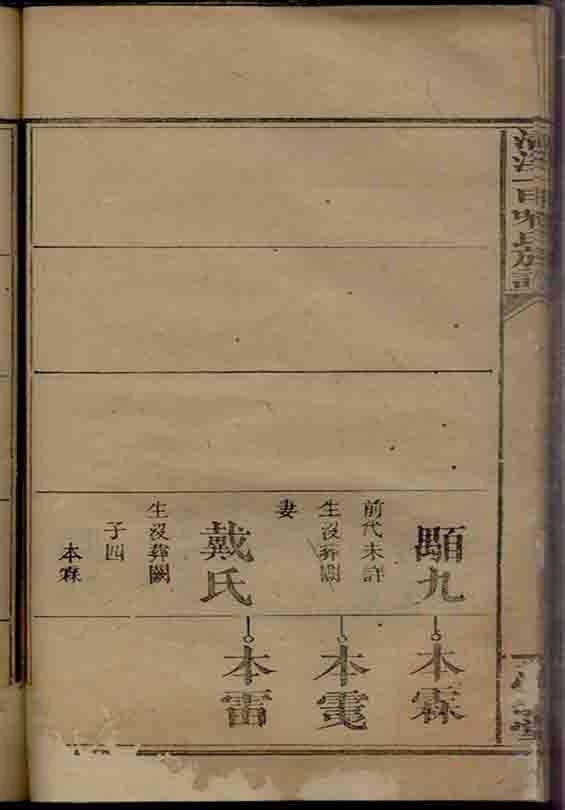 氏族
九
前代未詳
生沒葬闕
妻
戴氏
生沒葬闕
子四
本霖
本霖
本
本雷
堂